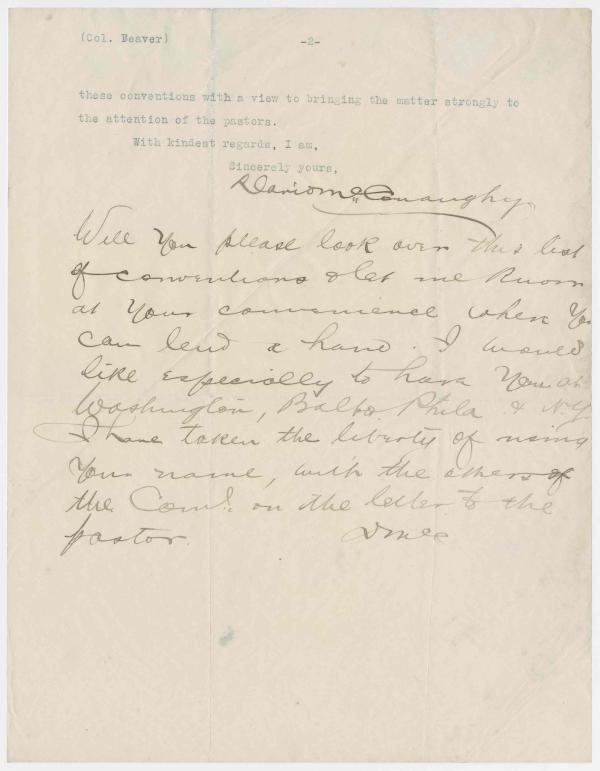 (Col. Beaver)
-2-
these conventions with a view to bringing the matter strongly to
the attention of the pastors.
With kindest regards, I am,
Sincerely yours,
David McConaughy
Will you please look over this list
of conventions & let me know
at your convenience when you
can lend a hand. I would
like especially to have you at
Washington, Balto Phila & N.Y.
I have taken the liberty of using
your name, with the others of
the Com. on the letter to the
pastor. DMcC